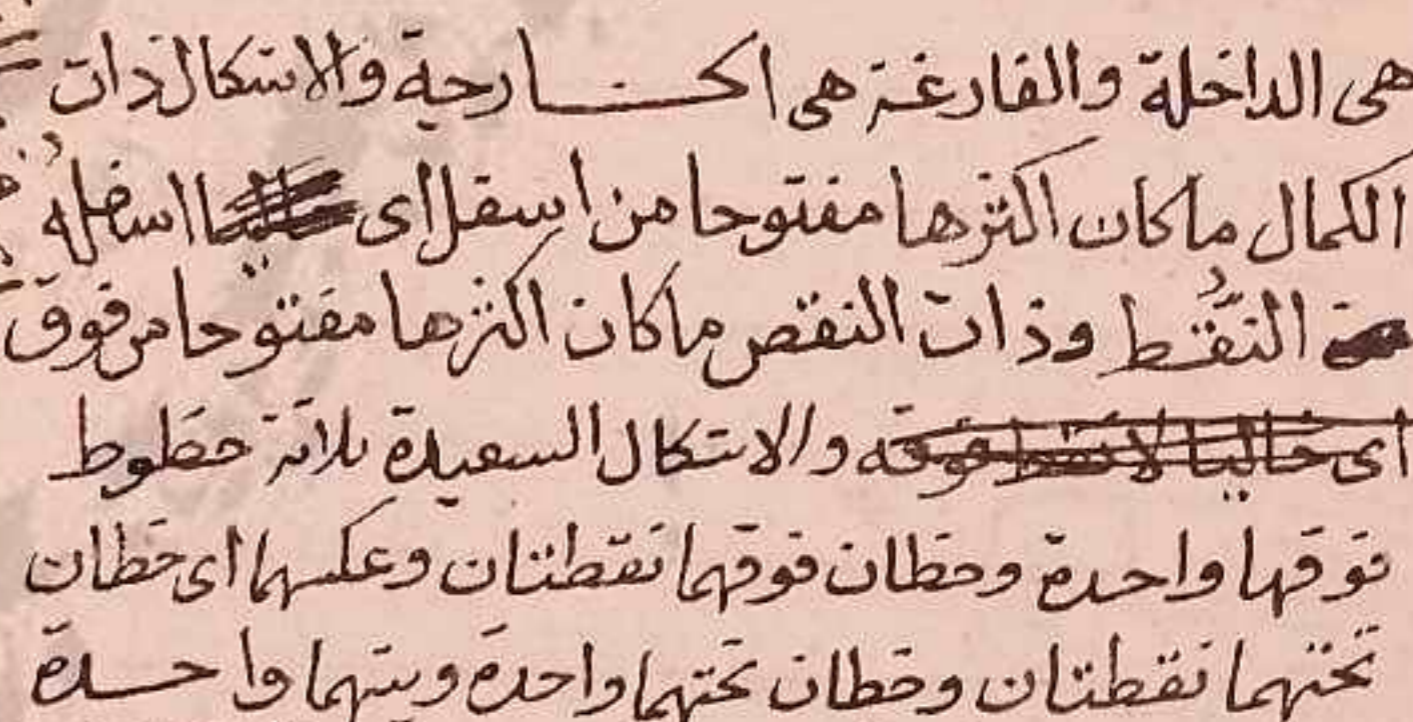 هى الداخلة والفارغة هى الخارجية والاشكال ذات
الكمال ما كان اكثرها مفتوحا من اسفل اى اسفله
النقط وذات النقص ما كان اكثرها مفتوحا من فوق
اى خاليا لا نقط فوقه والاشكال السعيدة ثلاثة خطوط
فوقها واحدة وخطان فوقهما نقطتان وعكسهما اى خطان
تحتهما نقطتان وخطان تحتهما واحدة وبينهما واحدة